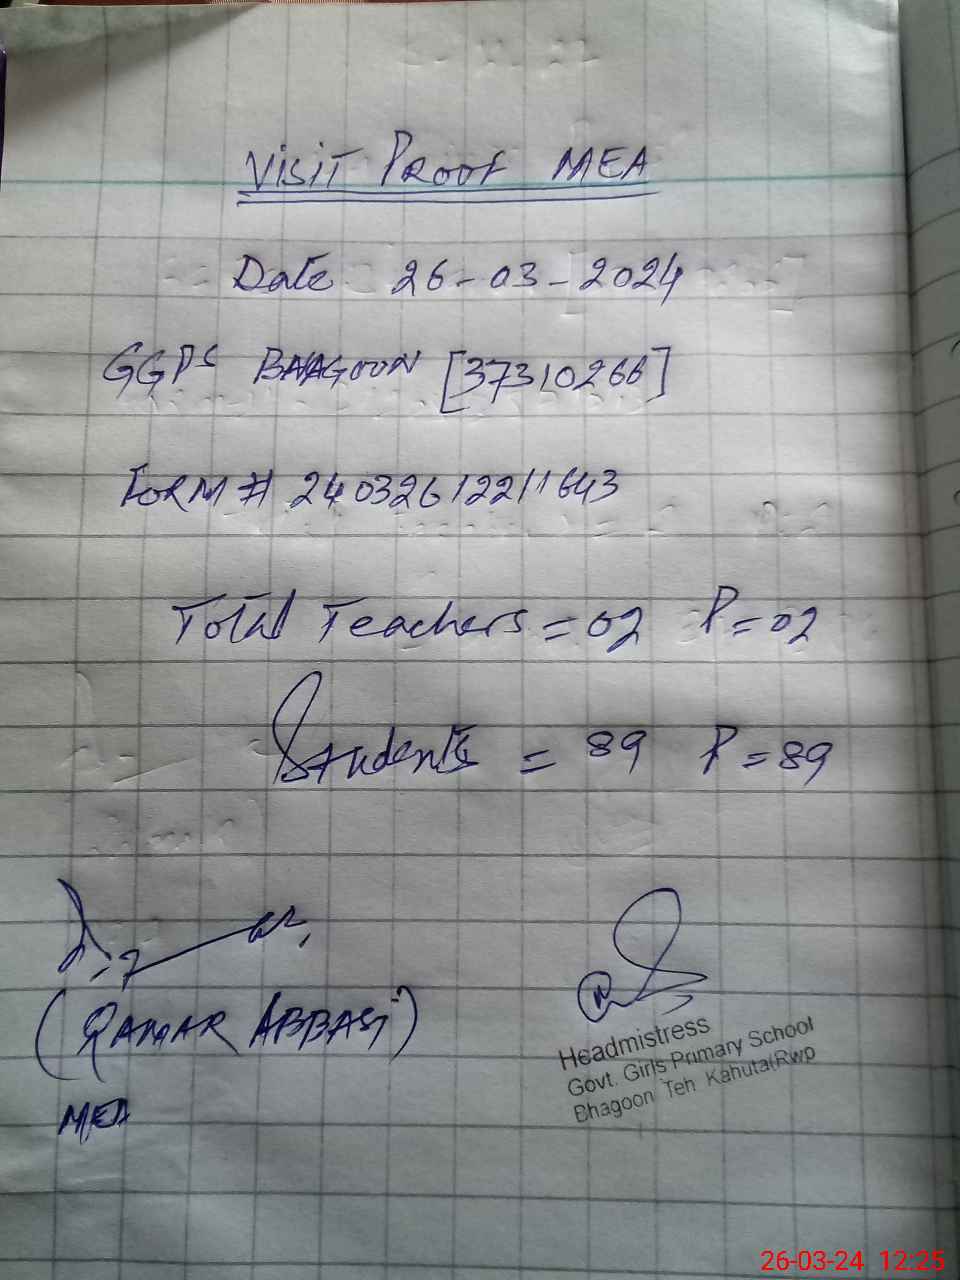 VISIT PROOF MEA
Date 26-03-2024
GGPS BHAGOON [37310266]
FORM # 24032612211643
Total Teachers = 02 P = 02
Students = 89 P = 89
(QAMAR ABBASI)
MEA
Headmistress
Govt. Girls Primary School
Bhagoon Teh Kahuta(Rwp
26-03-24 12:25